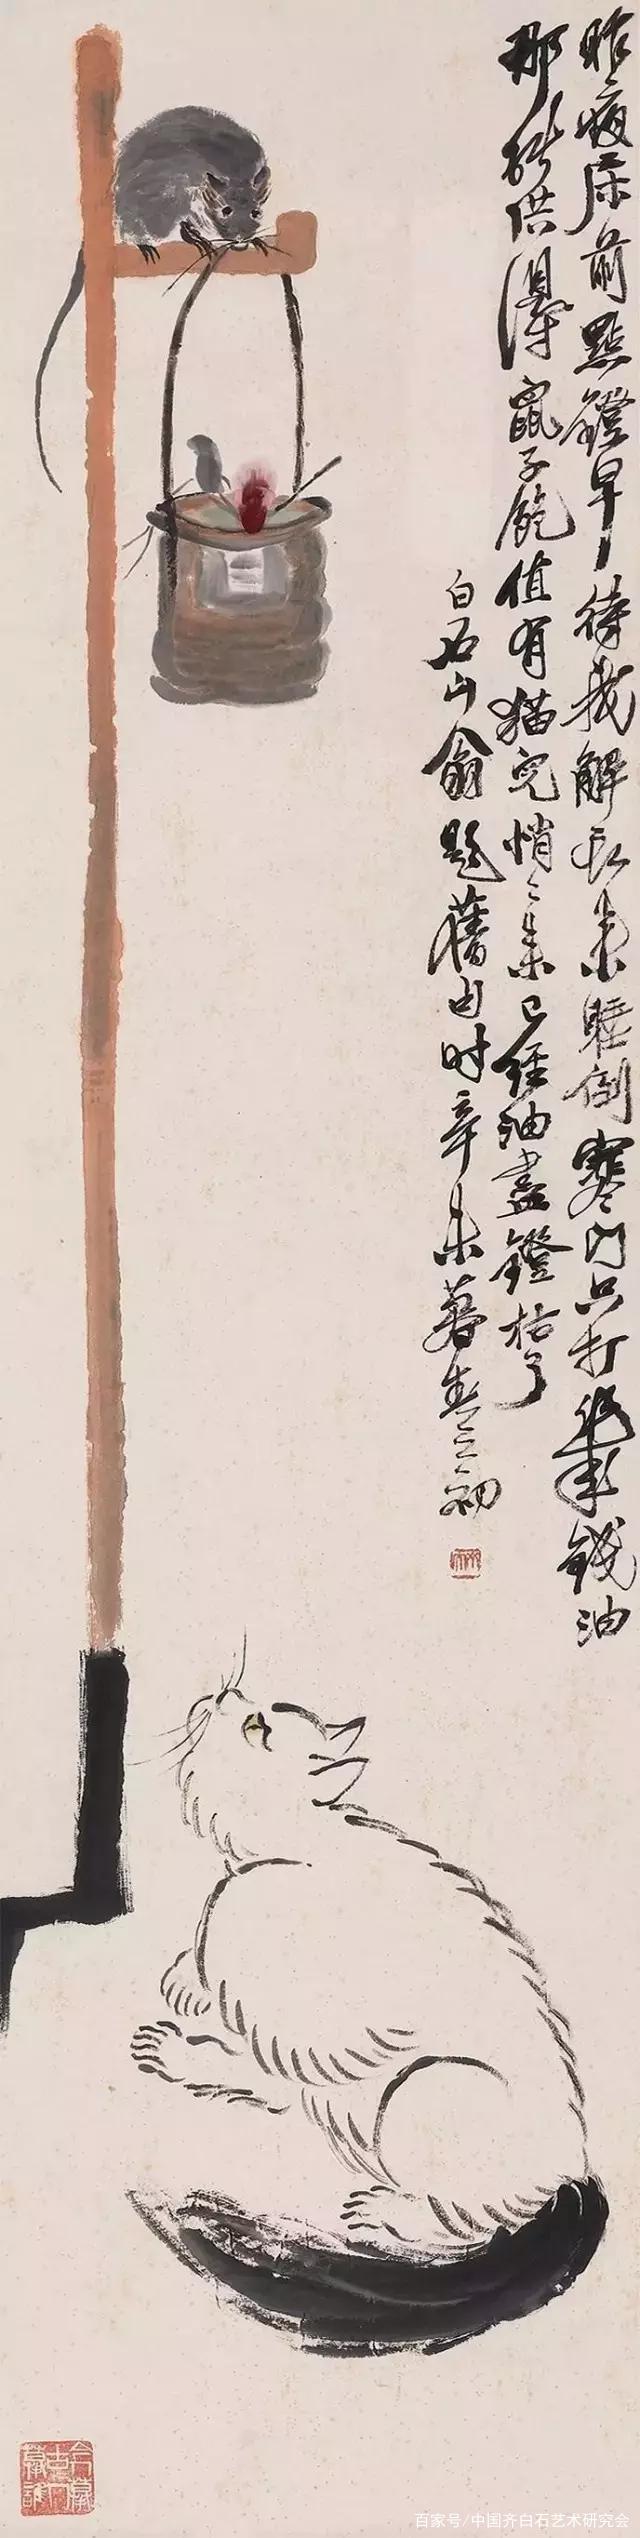 昨夜床前點鐙早待我解衣來睡倒寒門只打一錢油
那能供得鼠子飽值有猫兒悄〻來已經油盡鐙枯了
白石山翁題舊句時辛未暮春之初
百家号/中国齐白石艺术研究会